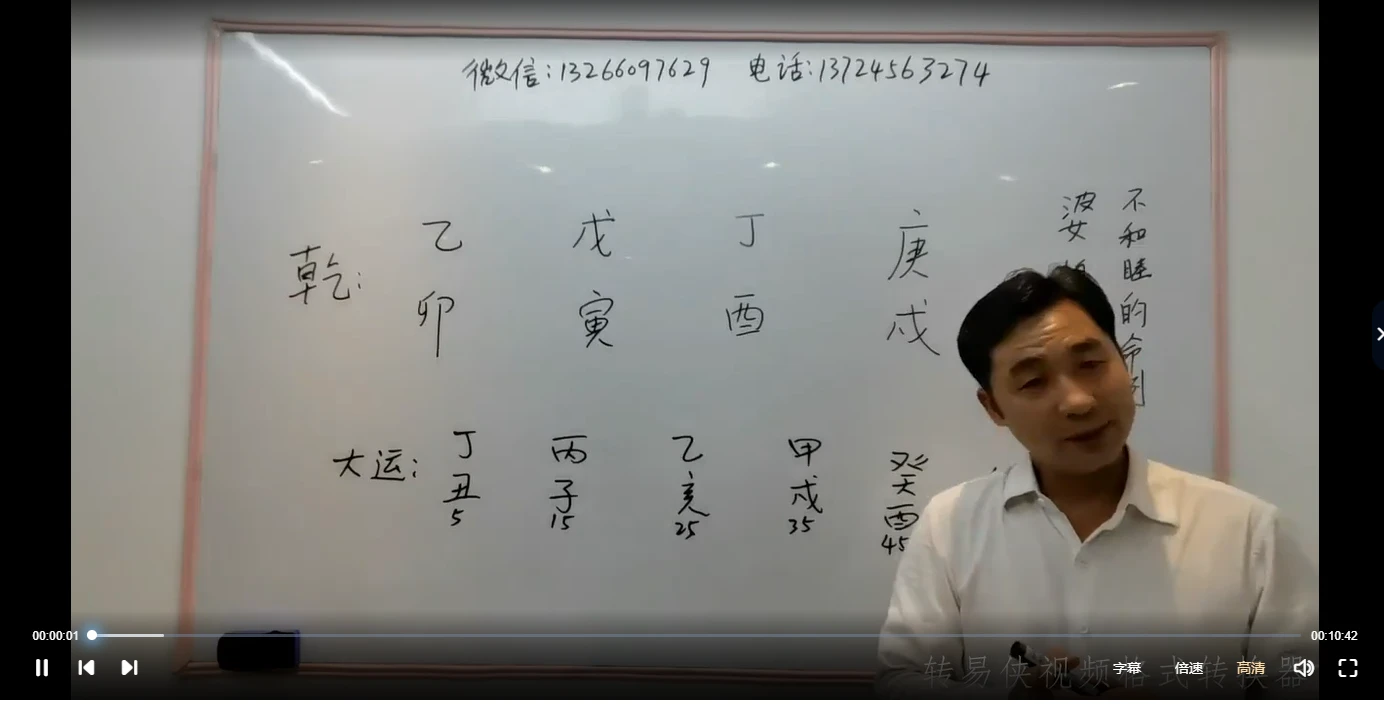 微信:13266097629 电话:13724563274
乾: 乙 戊 丁 庚
卯 寅 酉 戌
大运: 丁 丙 乙 甲 癸
丑 子 亥 戌 酉
5 15 25 35 45
不和睦的命例
婆
00:00:01
00:10:42
字幕 倍速 高清
转易侠视频格式转换器